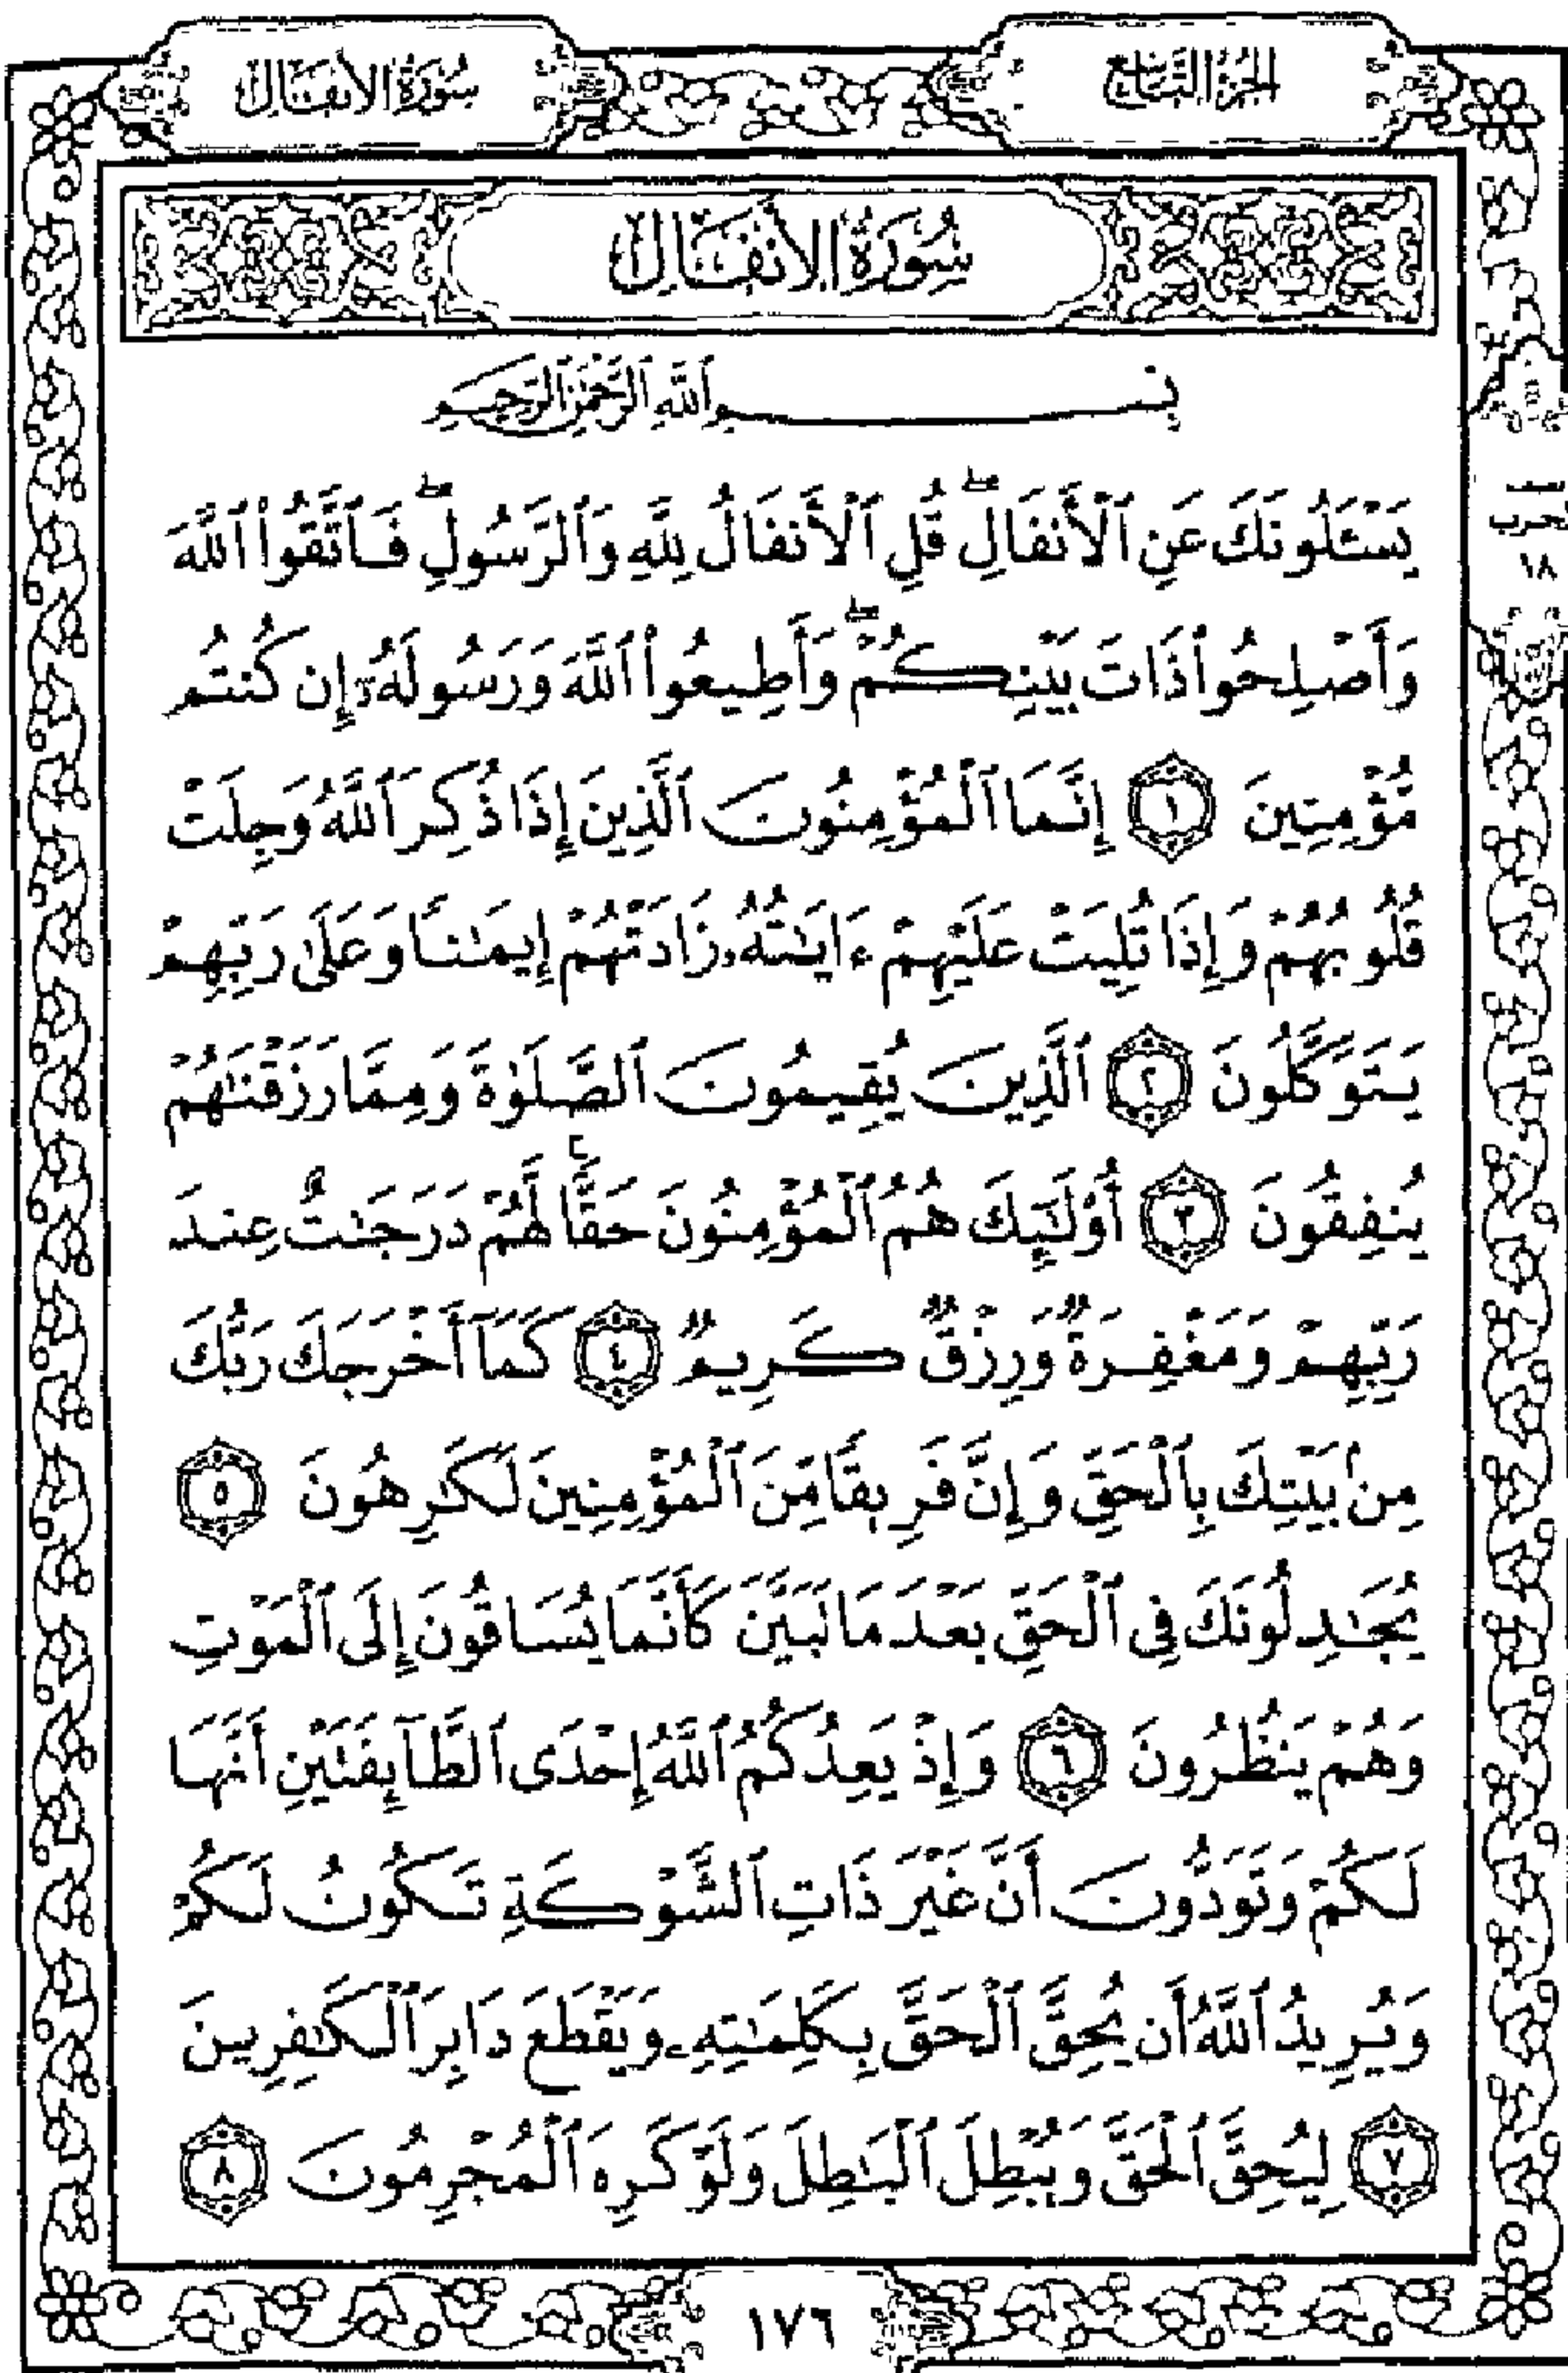 الجزء التاسع
سورة الأنفال
سُورَةُ الأَنفَالِ
بِسْمِ ٱللَّهِ ٱلرَّحْمَٰنِ ٱلرَّحِيمِ
يَسْـَٔلُونَكَ عَنِ ٱلْأَنفَالِ ۖ قُلِ ٱلْأَنفَالُ لِلَّهِ وَٱلرَّسُولِ ۖ فَٱتَّقُوا۟ ٱللَّهَ
وَأَصْلِحُوا۟ ذَاتَ بَيْنِكُمْ ۖ وَأَطِيعُوا۟ ٱللَّهَ وَرَسُولَهُۥٓ إِن كُنتُم
مُّؤْمِنِينَ ١ إِنَّمَا ٱلْمُؤْمِنُونَ ٱلَّذِينَ إِذَا ذُكِرَ ٱللَّهُ وَجِلَتْ
قُلُوبُهُمْ وَإِذَا تُلِيَتْ عَلَيْهِمْ ءَايَٰتُهُۥ زَادَتْهُمْ إِيمَٰنًا وَعَلَىٰ رَبِّهِمْ
يَتَوَكَّلُونَ ٢ ٱلَّذِينَ يُقِيمُونَ ٱلصَّلَوٰةَ وَمِمَّا رَزَقْنَٰهُمْ
يُنفِقُونَ ٣ أُو۟لَٰٓئِكَ هُمُ ٱلْمُؤْمِنُونَ حَقًّا ۚ لَّهُمْ دَرَجَٰتٌ عِندَ
رَبِّهِمْ وَمَغْفِرَةٌ وَرِزْقٌ كَرِيمٌ ٤ كَمَآ أَخْرَجَكَ رَبُّكَ
مِنۢ بَيْتِكَ بِٱلْحَقِّ وَإِنَّ فَرِيقًا مِّنَ ٱلْمُؤْمِنِينَ لَكَٰرِهُونَ ٥
يُجَٰدِلُونَكَ فِى ٱلْحَقِّ بَعْدَ مَا تَبَيَّنَ كَأَنَّمَا يُسَاقُونَ إِلَى ٱلْمَوْتِ
وَهُمْ يَنظُرُونَ ٦ وَإِذْ يَعِدُكُمُ ٱللَّهُ إِحْدَى ٱلطَّآئِفَتَيْنِ أَنَّهَا
لَكُمْ وَتَوَدُّونَ أَنَّ غَيْرَ ذَاتِ ٱلشَّوْكَةِ تَكُونُ لَكُمْ
وَيُرِيدُ ٱللَّهُ أَن يُحِقَّ ٱلْحَقَّ بِكَلِمَٰتِهِۦ وَيَقْطَعَ دَابِرَ ٱلْكَٰفِرِينَ
٧ لِيُحِقَّ ٱلْحَقَّ وَيُبْطِلَ ٱلْبَٰطِلَ وَلَوْ كَرِهَ ٱلْمُجْرِمُونَ ٨
الحزب
١٨
١٧٦